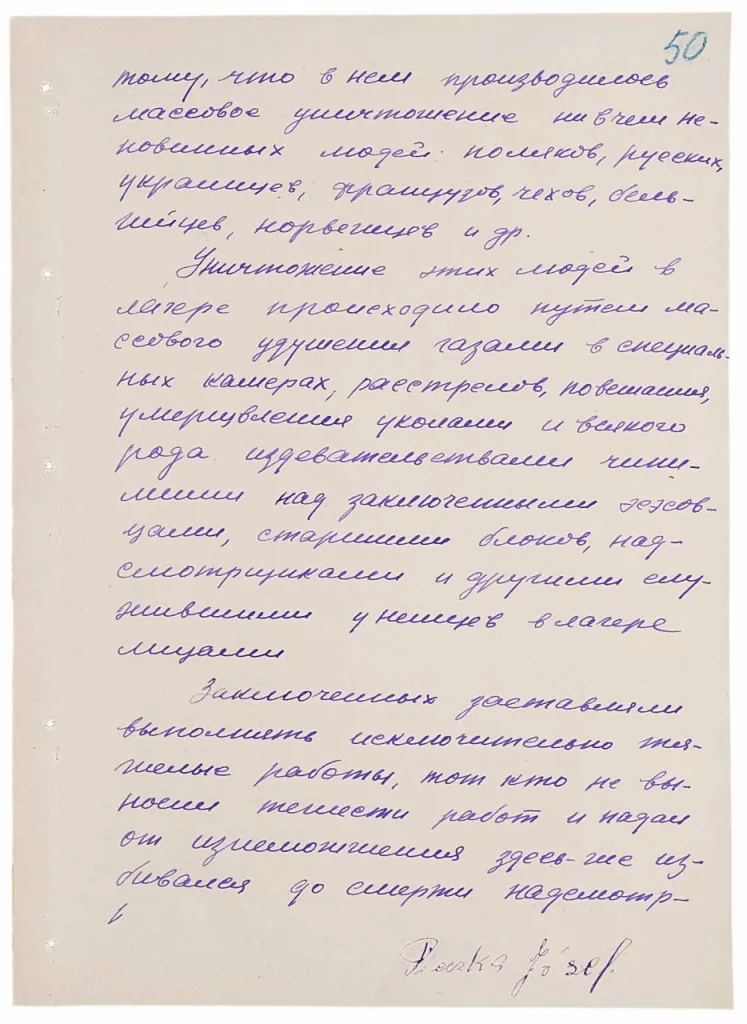 50
тому, что в нем производилось
массовое уничтожение ни в чем не-
повинных людей: поляков, русских,
украинцев, французов, чехов, бель-
гийцев, норвегцев и др.
Уничтожение этих людей в
лагере происходило путем ма-
ссового удушения газами в специаль-
ных камерах, расстрелов, повешания,
умерщвления уколами и всякого
рода издевательствами чини-
мыми над заключенными эсэсов-
цами, старшими блоков, над-
смотрщиками и другими слу-
жившими у немцев в лагере
лицами
Заключенных заставляли
выполнять исключительно тя-
желые работы, тот кто не вы-
носил тяжести работ и падал
от изнеможжения здесь-же из-
бивался до смерти надсмотр-
Józef.